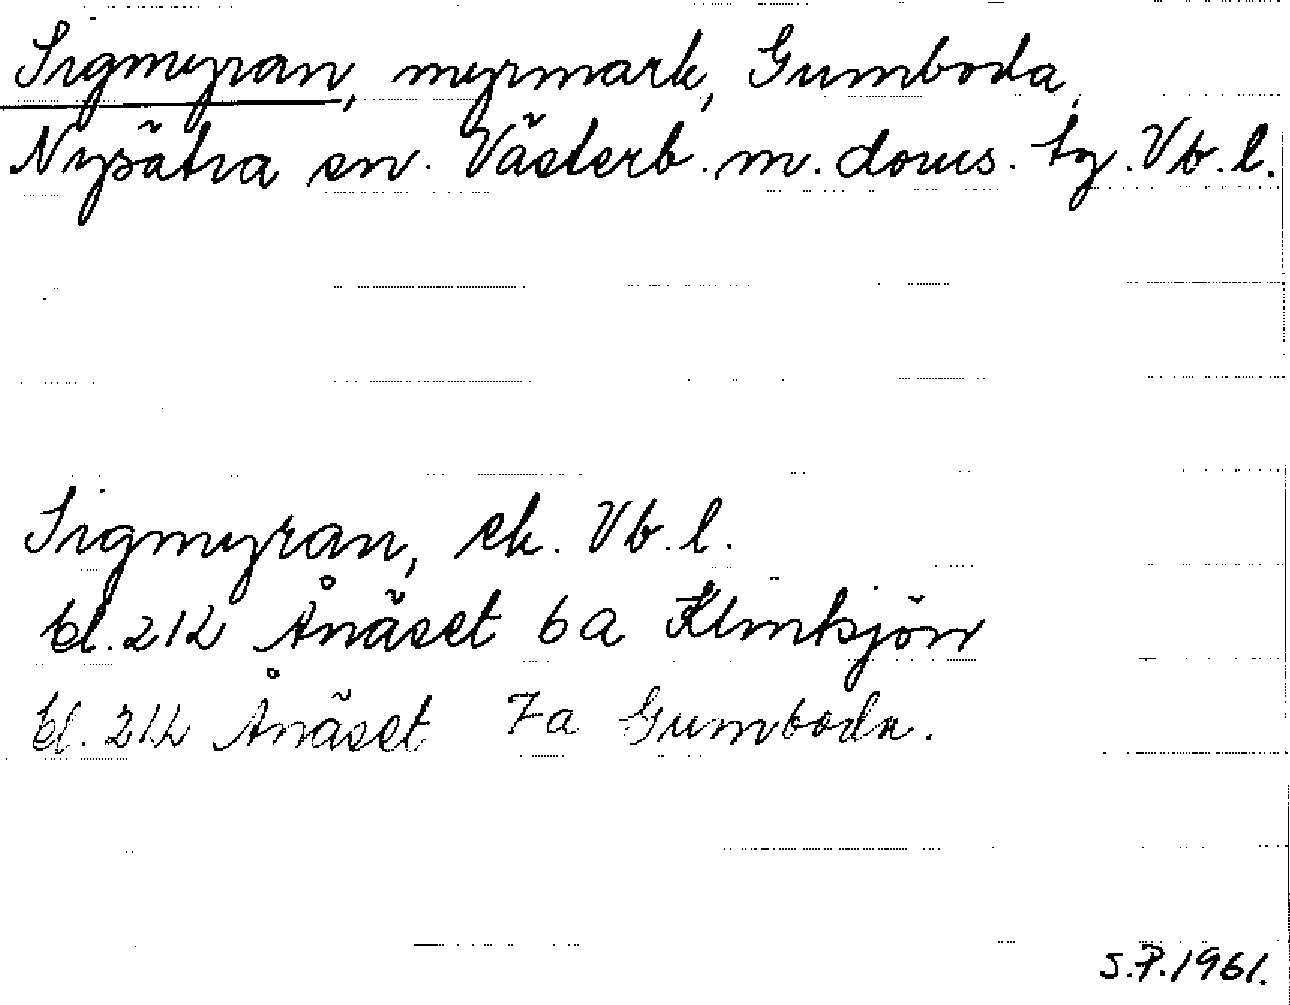 Sigmyran, myrmark, Gumboda,
Nysätra sn. Västerb. m. doms. tg. Vb. l.
Sigmyran, ek. Vb. l.
bl. 21L Ånäset 6a Klintsjön
bl. 21L Ånäset 7a Gumboda.
S.P. 1961.